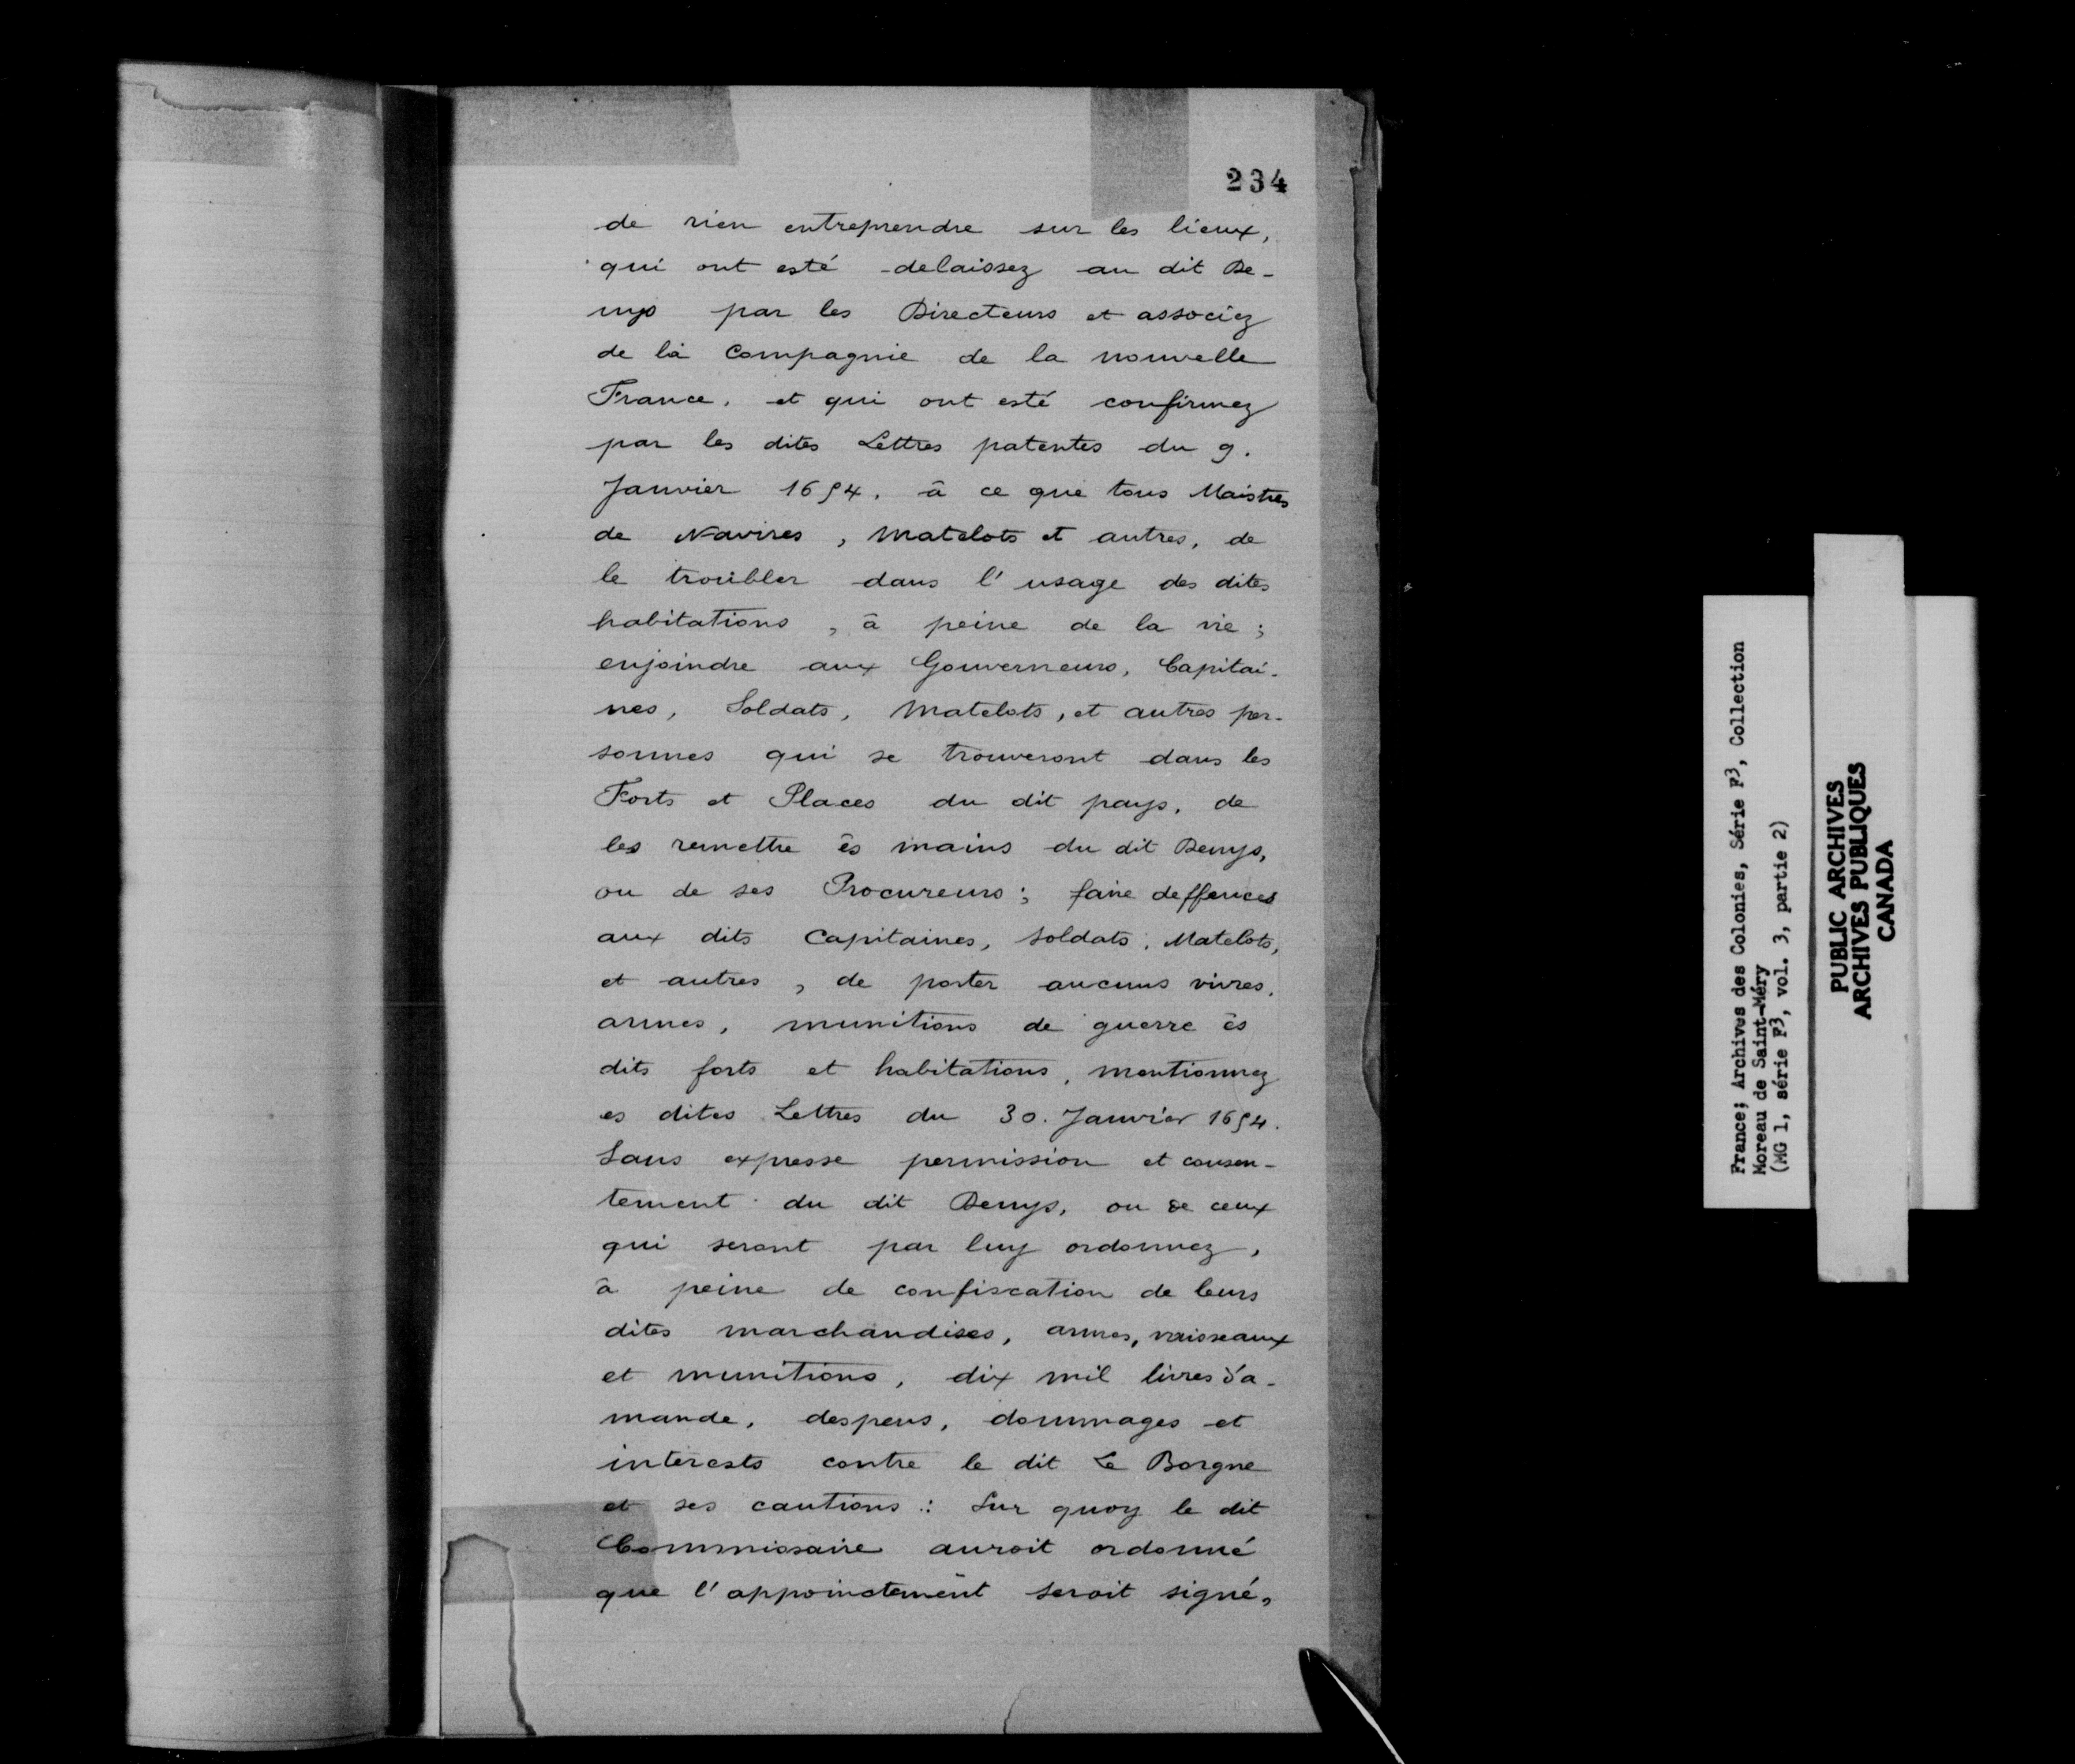 234
de rien entreprendre sur les lieux,
qui ont esté delaissez au dit De-
nys par les Directeurs et associez
de la Compagnie de la nouvelle
France, et qui ont esté confirmez
par les dites Lettres patentes du 9.
Janvier 1654. à ce que tous Maistres
de Navires, Matelots et autres, de
le troubler dans l'usage des dites
habitations, à peine de la vie;
enjoindre aux Gouverneurs, Capitai-
nes, Soldats, Matelots, et autres per-
sonnes qui se trouveront dans les
Forts et Places du dit pays, de
les remettre ès mains du dit Denys,
ou de ses Procureurs; faire deffences
aux dits Capitaines, Soldats, Matelots,
et autres, de porter aucuns vivres,
armes, munitions de guerre ès
dits forts et habitations, mentionnez
es dites Lettres du 30. Janvier 1654.
Sans expresse permission et consen-
tement du dit Denys, ou de ceux
qui seront par luy ordonnez,
à peine de confiscation de leurs
dites marchandises, armes, vaisseaux
et munitions, dix mil livres d'a-
mande, despens, dommages et
interests contre le dit Le Borgne
et ses cautions: Sur quoy le dit
Commissaire auroit ordonné
que l'appoinctement seroit signé,
France; Archives des Colonies, Série F3, Collection
Moreau de Saint-Méry
(MG 1, série F3, vol. 3, partie 2)
PUBLIC ARCHIVES
ARCHIVES PUBLIQUES
CANADA